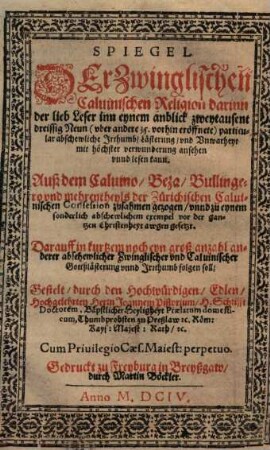 SPIEGEL
DEr Zwinglischen
Caluinischen Religion darinn
der lieb Leser inn eynem anblick zweytausent
dreissig Neun (vber andere 35. vorhin eröffnete) particu-
lar abschewliche Irthumb/ Lästerung/ vnd Vnwarheyt
mit höchster verwunderung ansehen
vnnd lesen kann.
Auß dem Caluino/ Beza/ Bullinge-
ro vnd mehrentheyls der Zürichischen Calui-
nischen Confession zusammen gezogen/ vnnd zu eynem
sonderlich abschewlichem exempel vor der gan-
tzen Christenheyt awgen gesetzt.
Darauff in kurtzem noch eyn groß anzahl an-
derer abschewlicher Zwinglischer vnd Caluinischer
Gottslästerung vnnd Irthumb folgen soll;
Gestelt/ durch den Hochwürdigen/ Edlen/
Hochgelehrten Herrn Joannem Pistorium/ H. Schrifft
Doctorem, Bäpstlicher Heyligheyt Prælatum domesti-
cum, Thumbprobsten zu Preßlaw ꝛc. Röm:
Kays: Majest: Rath/ ꝛc.
Cum Priuilegio Cæs. Maiest: perpetuo.
Gedruckt zu Freyburg in Breyßgaw/
durch Martin Böckler.
Anno M. DCIV.